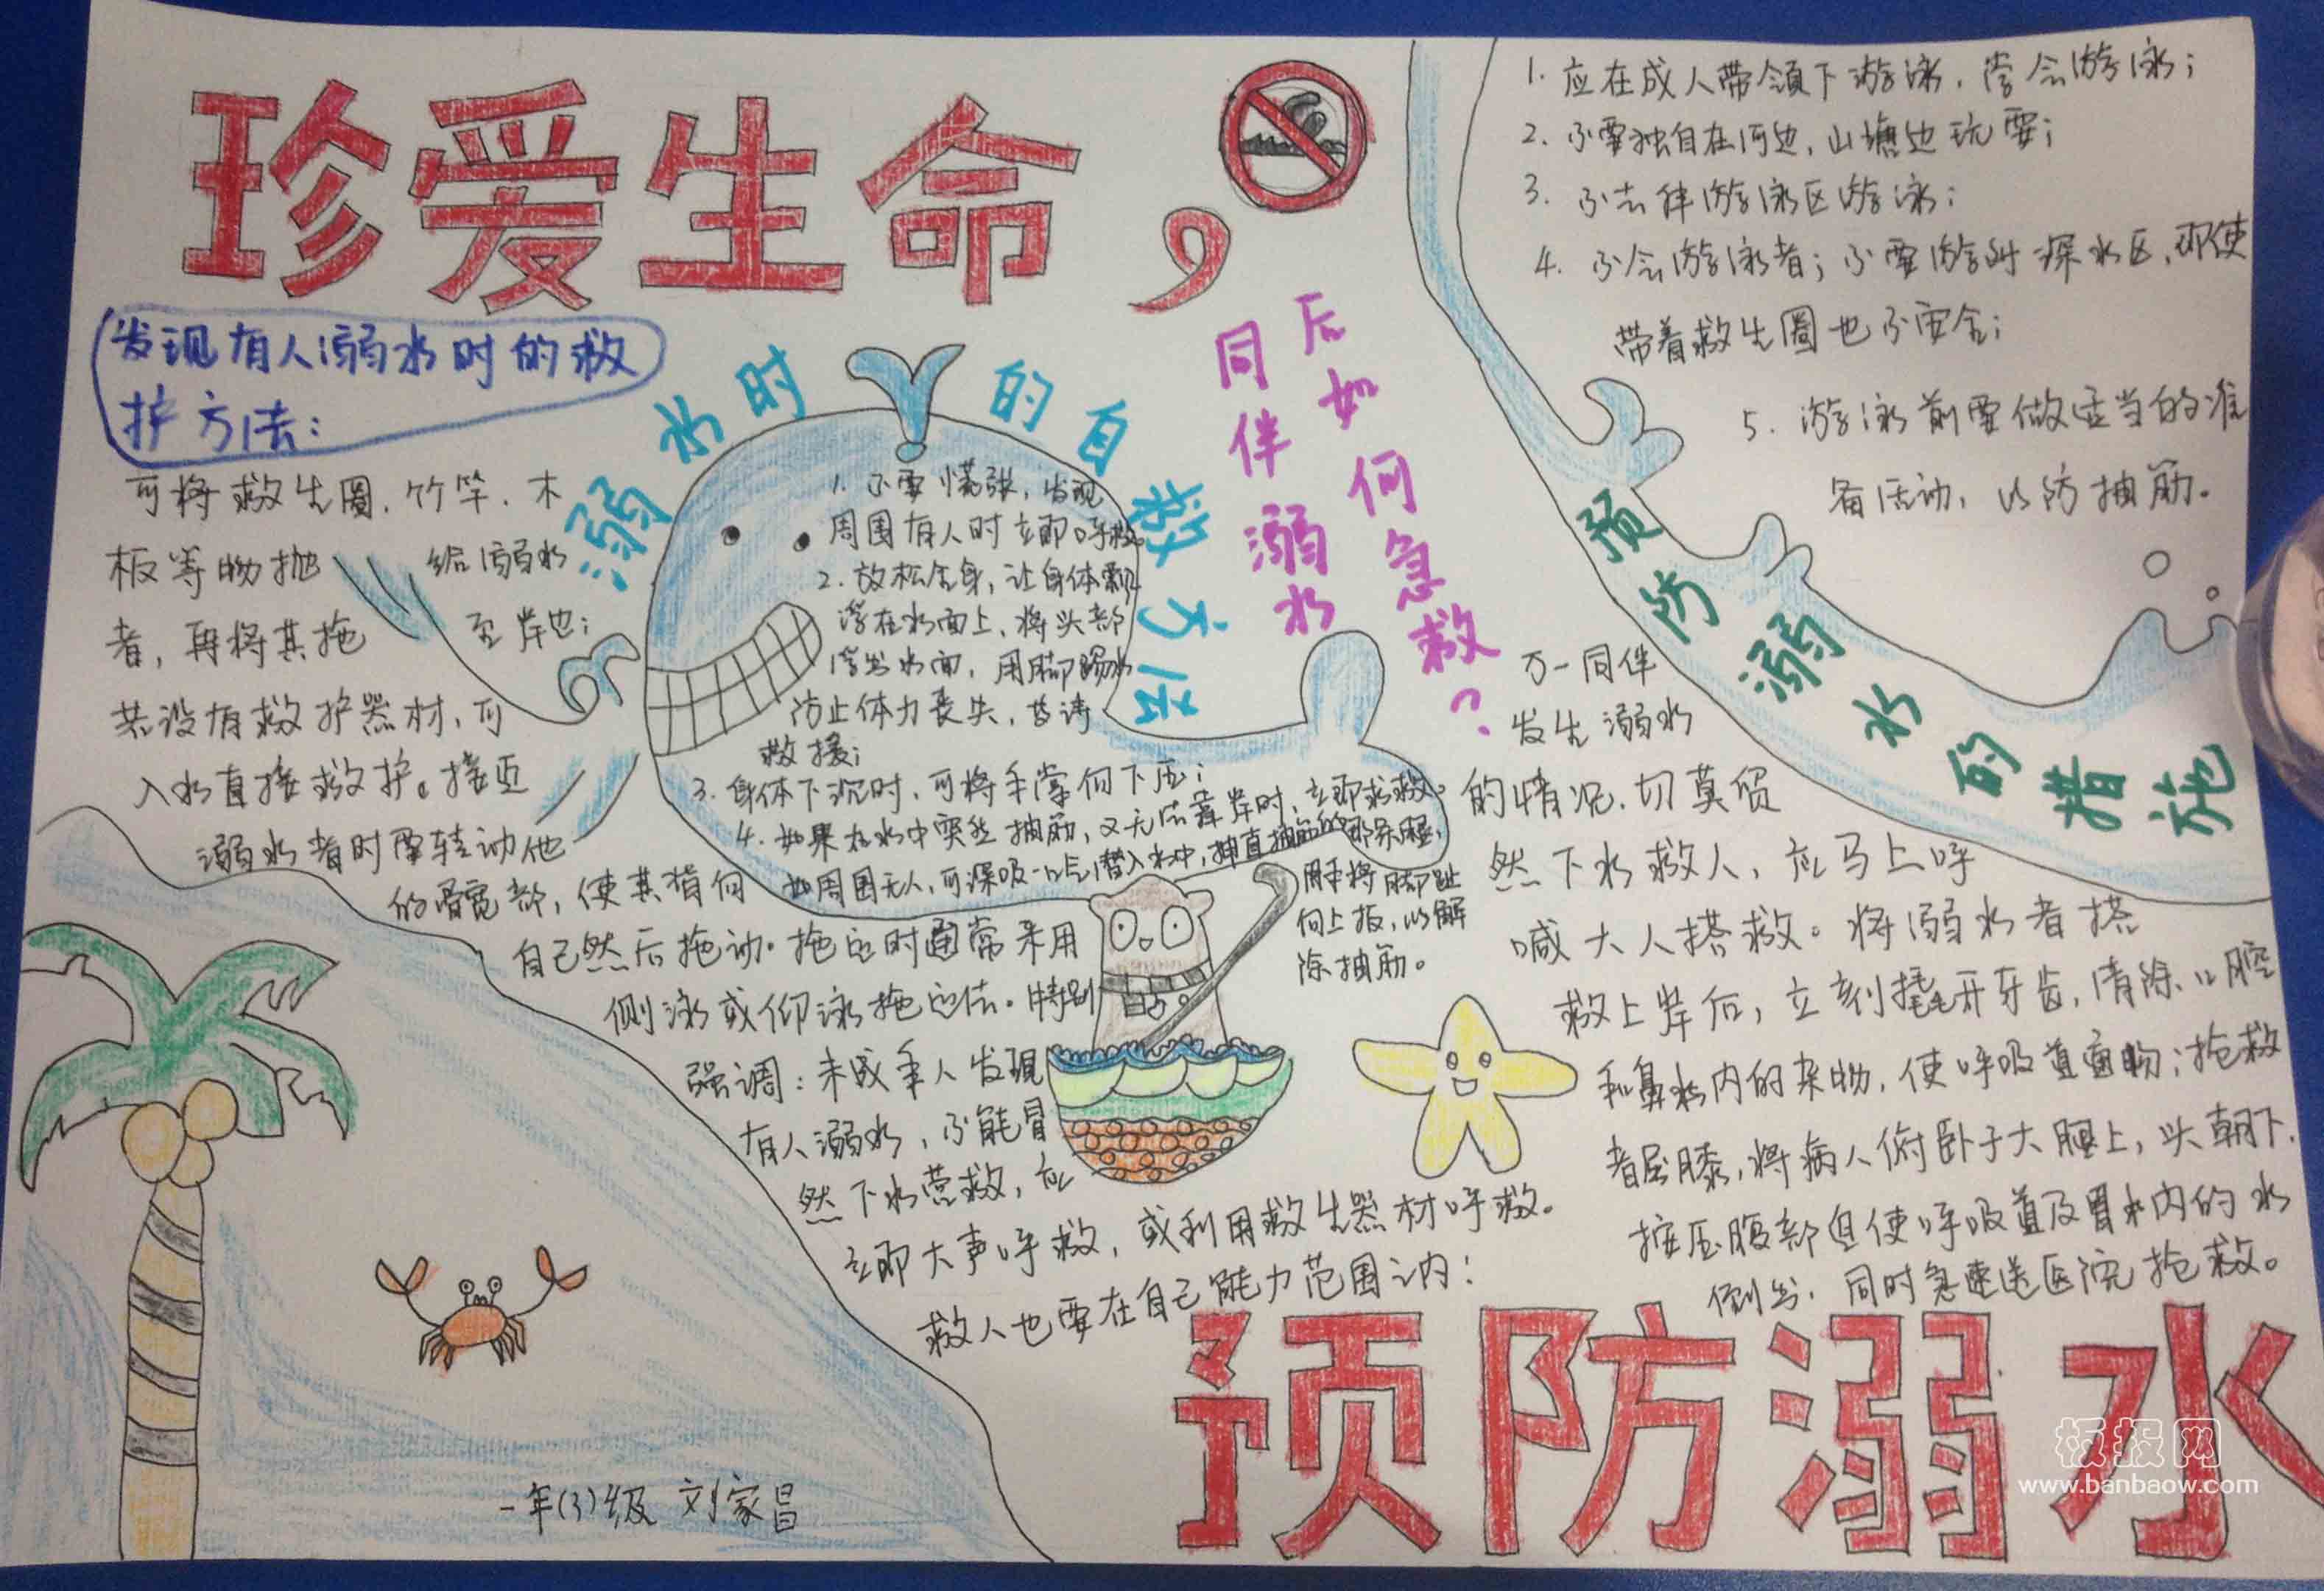 珍爱生命，
发现有人溺水时的救
护方法：
可将救生圈、竹竿、木
板等物抛给溺水
者，再将其拖至岸边；
若没有救护器材，可
入水直接救护。接近
溺水者时要转动他
的髋部，使其背向
自己然后拖动。拖运时通常采用
侧泳或仰泳拖运法。特别
强调：未成年人发现
有人溺水，不能冒
然下水营救，应
立即大声呼救，或利用救生器材呼救。
救人也要在自己能力范围之内！
溺水时的自救方法
1. 不要慌张，发现
周围有人时立即呼救。
2. 放松全身，让身体飘
浮在水面上，将头部
浮出水面，用脚踢水
防止体力丧失，等待
救援；
3. 身体下沉时，可将手掌向下压；
4. 如果在水中突然抽筋，又无法靠岸时，立即求救。
如周围无人，可深吸一口气潜入水中，伸直抽筋的那条腿，
用手将脚趾
向上扳，以解
除抽筋。
同伴溺水
后如何急救？
万一同伴
发生溺水
的情况，切莫贸
然下水救人，应马上呼
喊大人搭救。将溺水者搭
救上岸后，立刻撬开牙齿，清除口腔
和鼻水内的杂物，使呼吸道畅；抢救
者屈膝，将病人俯卧于大腿上，头朝下，
按压腹部但使呼吸道及胃水内的水
倒出，同时急速送医院抢救。
1. 应在成人带领下游泳，学会游泳；
2. 不要独自在河边，山塘边玩耍；
3. 不去伴游泳区游泳；
4. 不会游泳者；不要游到深水区，即使
带着救生圈也不安全；
5. 游泳前要做适当的准
备活动，以防抽筋。
预防溺水的措施
预防溺水
一年(3)级 刘家昌
板报网
www.banbaow.com